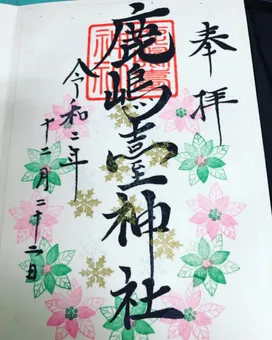 奉拝
鹿嶋臺神社
令和二年
十二月二十二日